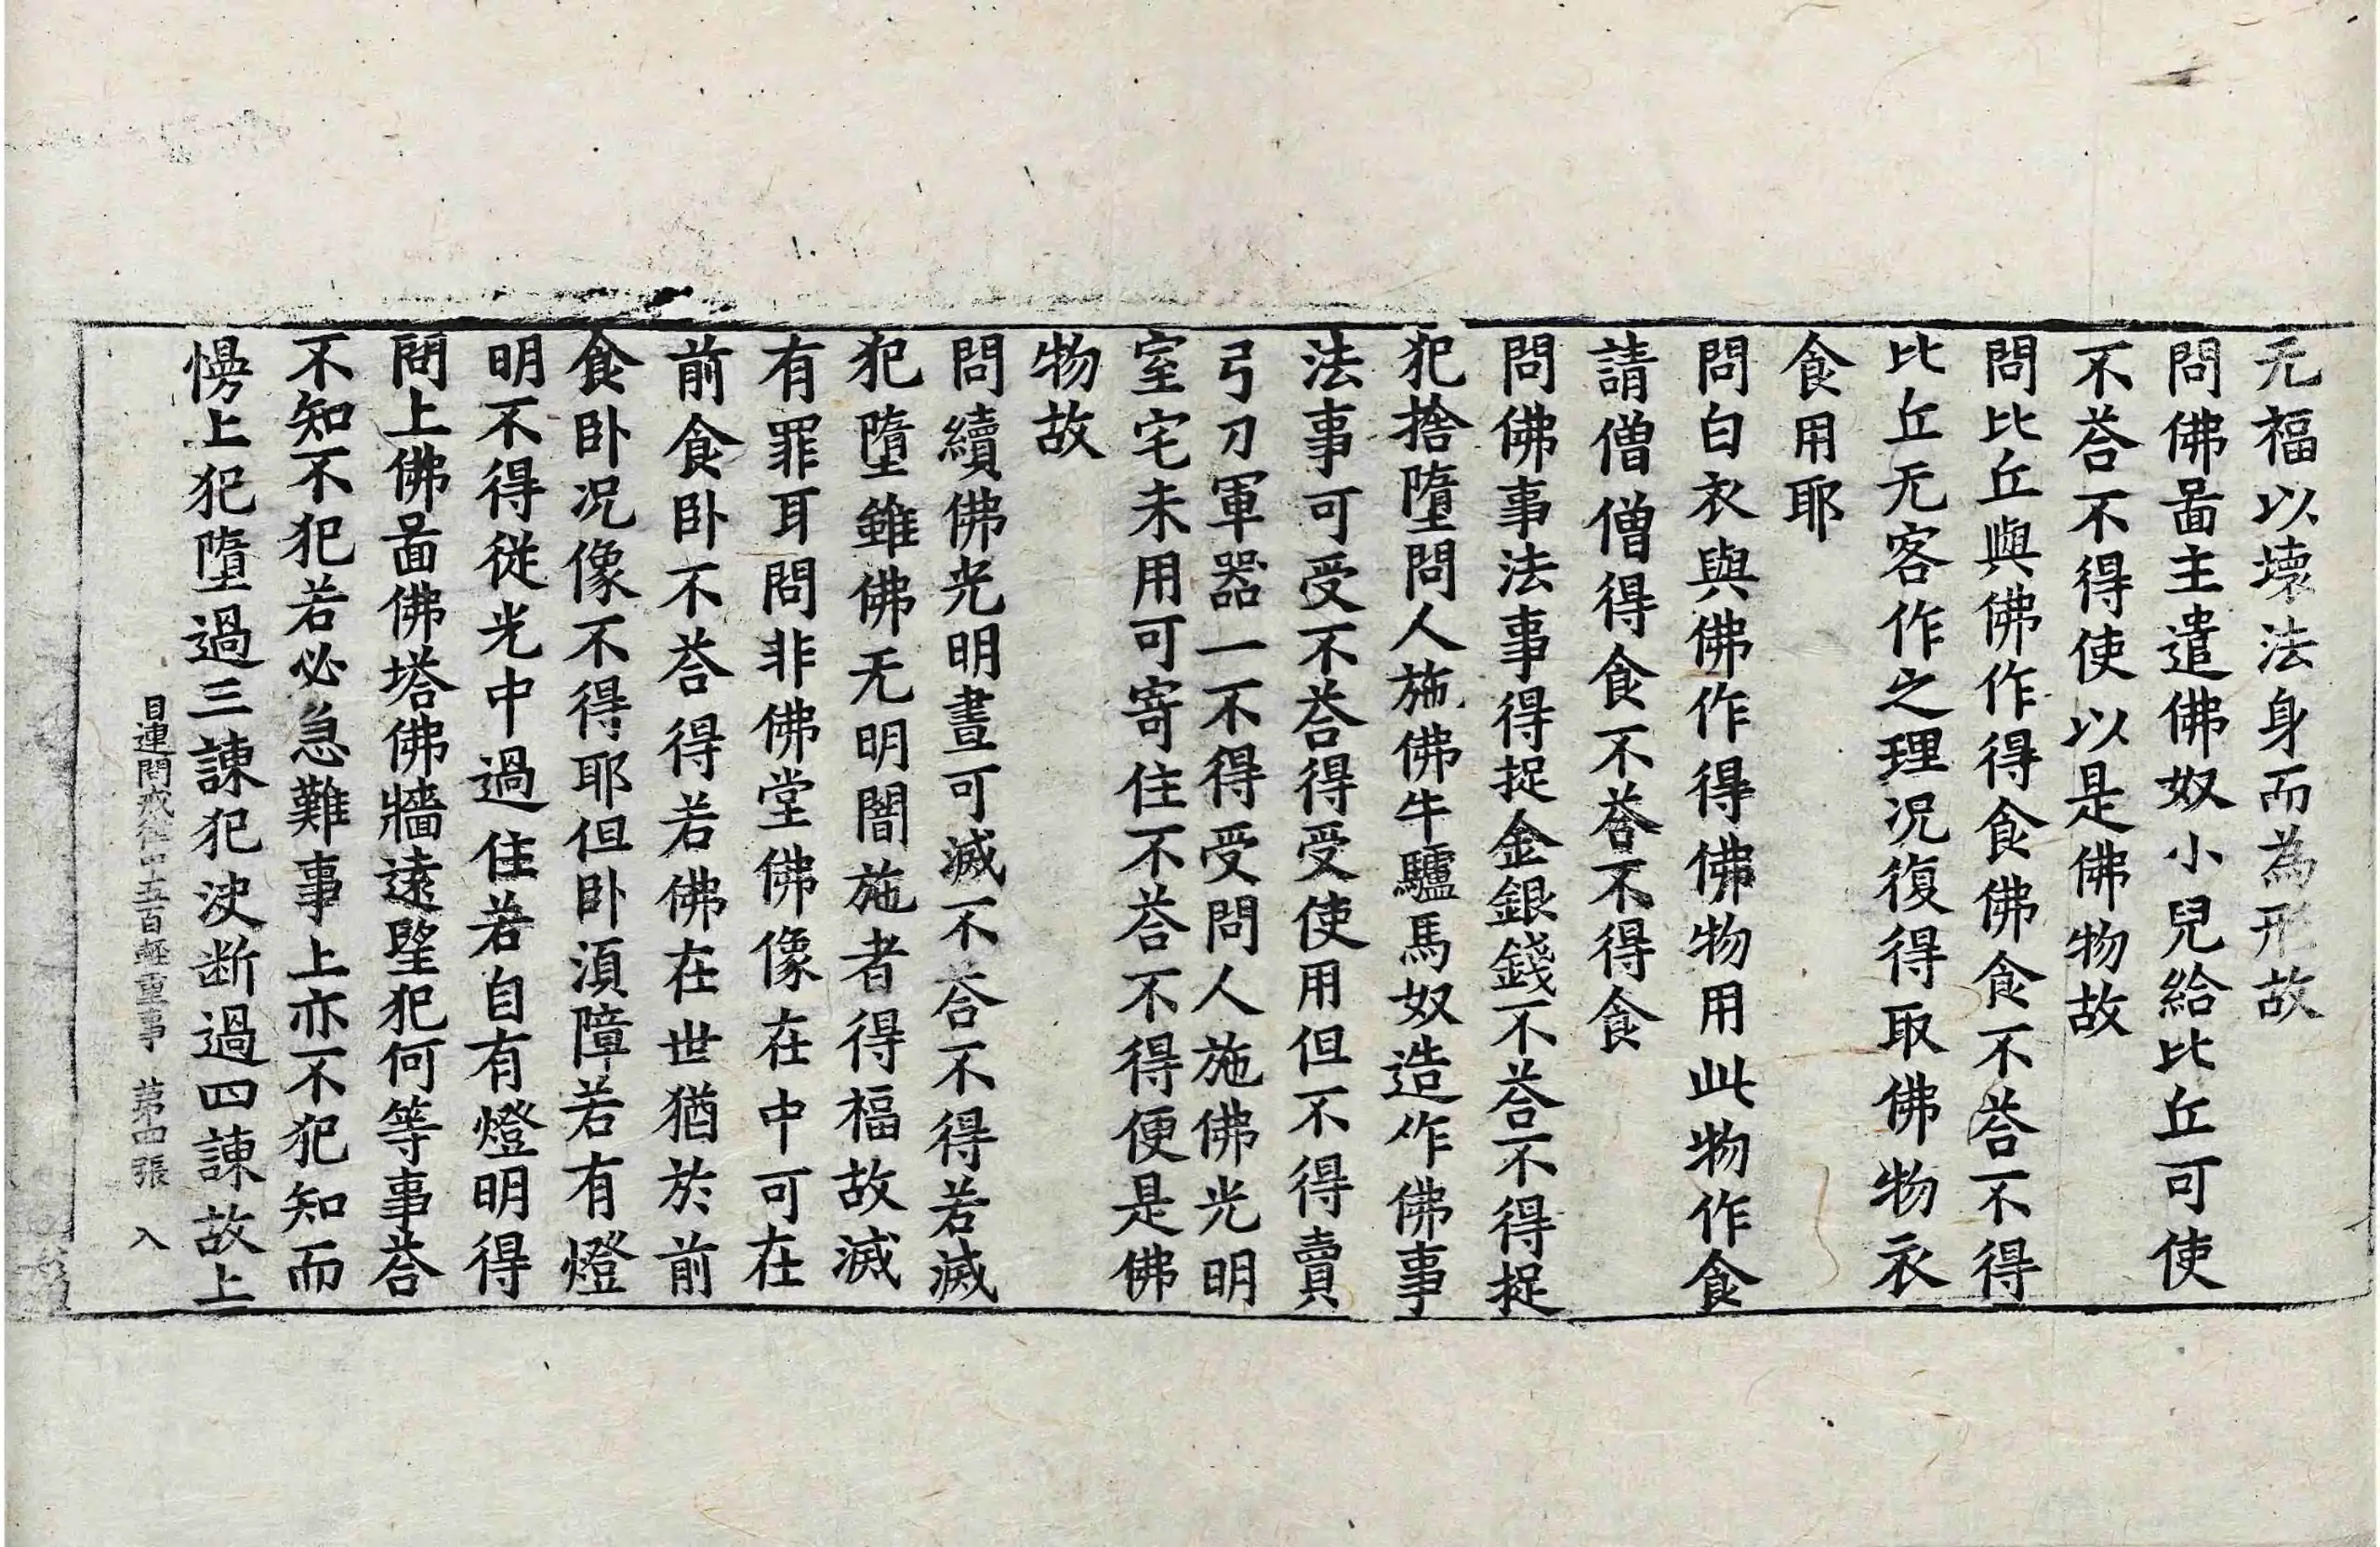 无福以壞法身而為形故
問佛啚主遣佛奴小兒給比丘可使
不荅不得使以是佛物故
問比丘與佛作得食佛食不荅不得
比丘无客作之理况復得取佛物衣
食用耶
問白衣與佛作得佛物用此物作食
請僧僧得食不荅不得食
問佛事法事得捉金銀錢不荅不得捉
犯捨墮問人施佛牛驢馬奴造作佛事
法事可受不荅得受使用但不得賣
弓刀軍器一不得受問人施佛光明
室宅未用可寄住不荅不得便是佛
物故
問續佛光明晝可滅不荅不得若滅
犯墮雖佛无明闇施者得福故滅
有罪耳問非佛堂佛像在中可在
前食卧不荅得若佛在世猶於前
食卧况像不得耶但卧湏障若有燈
明不得從光中過住若自有燈明得
問上佛啚佛塔佛牆遠望犯何等事荅
不知不犯若必急難事上亦不犯知而
慢上犯墮過三諫犯决断過四諫故上
目連問戒律中五百輕重事 第四張 入